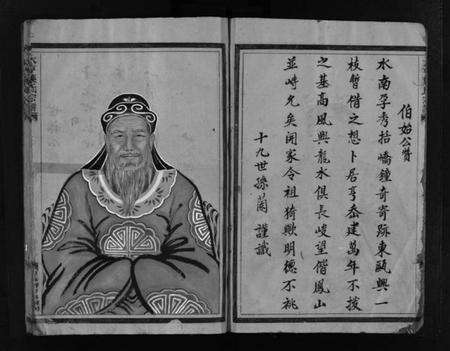 伯始公贊
水南孕秀括嶠鍾奇寄跡東甌興一
枝暫借之想卜居亨岙建萬年不拔
之基高風與龍水俱長峻望偕鳳山
並峙允矣開家令祖猗歟明德不祧
十九世孫蘭謹識